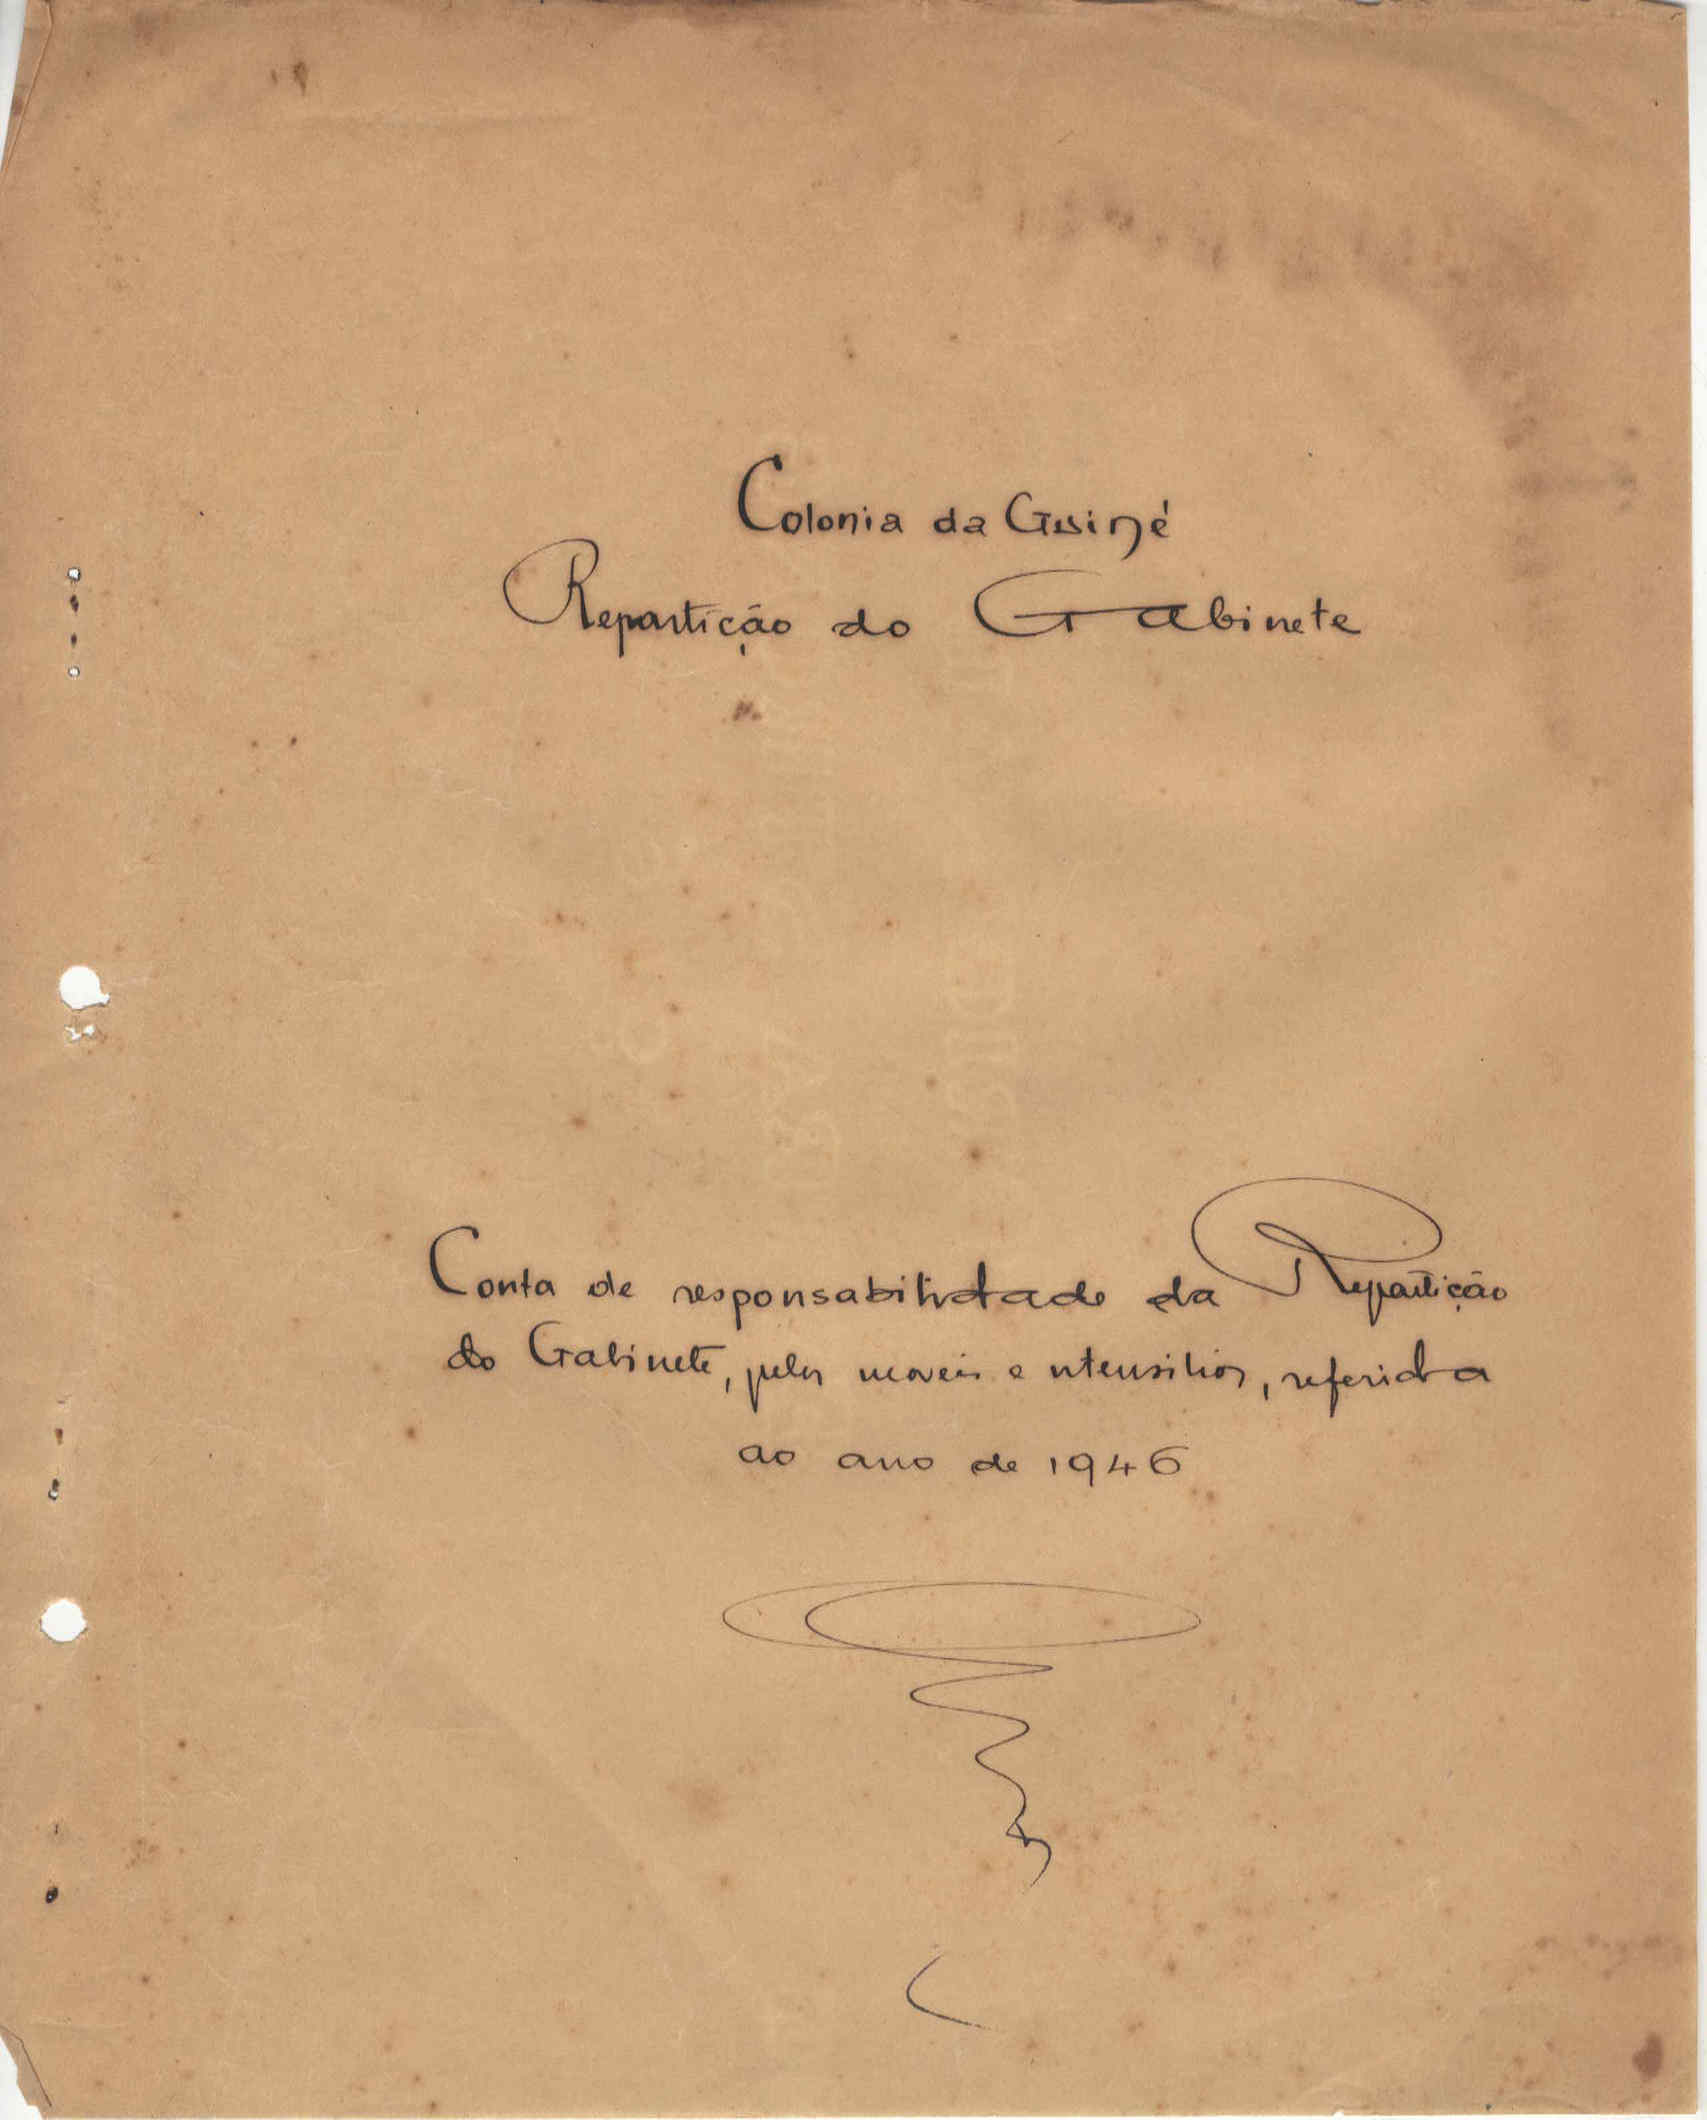 Colonia da Guiné
Repartição do Gabinete
Conta de responsabilidade da Repartição
do Gabinete, pelos moveis e utensilios, referida
ao ano de 1946